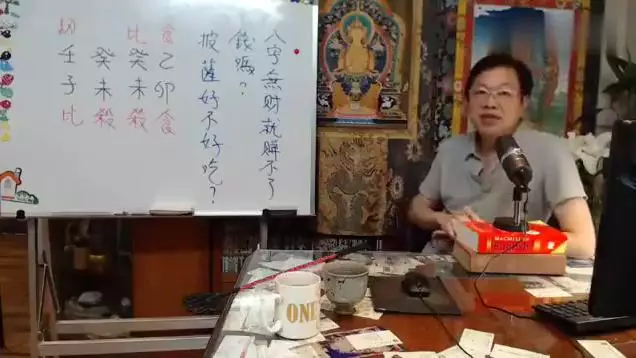 八字無財就賺不了
錢嗎?
披薩好不好吃?
食乙卯食
比癸未殺
癸未殺
劫壬子比